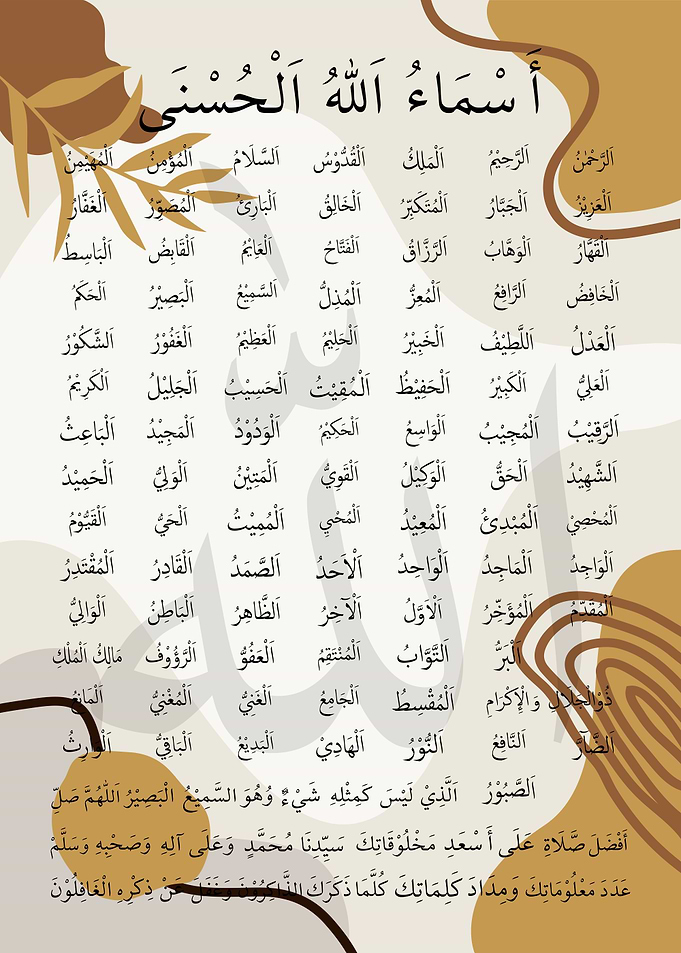 أَسْمَاءُ اَللهُ اَلْحُسْنَى
اَلرَّحْمٰنُ اَلرَّحِيْمُ اَلْمَلِكُ اَلْقُدُّوْسُ اَلسَّلَامُ اَلْمُؤْمِنُ اَلْمُهَيْمِنُ
اَلْعَزِيْزُ اَلْجَبَّارُ اَلْمُتَكَبِّرُ اَلْخَالِقُ اَلْبَارِئُ اَلْمُصَوِّرُ اَلْغَفَّارُ
اَلْقَهَّارُ اَلْوَهَّابُ اَلرَّزَّاقُ اَلْفَتَّاحُ اَلْعَايْمُ اَلْقَابِضُ اَلْبَاسِطُ
اَلْخَافِضُ اَلرَّافِعُ اَلْمُعِزُّ اَلْمُذِلُّ اَلسَّمِيْعُ اَلْبَصِيْرُ اَلْحَكَمُ
اَلْعَدْلُ اَللَّطِيْفُ اَلْخَبِيْرُ اَلْحَلِيْمُ اَلْعَظِيْمُ اَلْغَفُوْرُ اَلشَّكُوْرُ
اَلْعَلِيُّ اَلْكَبِيْرُ اَلْحَفِيْظُ اَلْمُقِيْتُ اَلْحَسِيْبُ اَلْجَلِيْلُ اَلْكَرِيْمُ
اَلرَّقِيْبُ اَلْمُجِيْبُ اَلْوَاسِعُ اَلْحَكِيْمُ اَلْوَدُوْدُ اَلْمَجِيْدُ اَلْبَاعِثُ
اَلشَّهِيْدُ اَلْحَقُّ اَلْوَكِيْلُ اَلْقَوِيُّ اَلْمَتِيْنُ اَلْوَلِيُّ اَلْحَمِيْدُ
اَلْمُحْصِيْ اَلْمُبْدِئُ اَلْمُعِيْدُ اَلْمُحْيِ اَلْمُمِيْتُ اَلْحَيُّ اَلْقَيُّوْمُ
اَلْوَاجِدُ اَلْمَاجِدُ اَلْوَاحِدُ اَلْاَحَدُ اَلصَّمَدُ اَلْقَادِرُ اَلْمُقْتَدِرُ
اَلْمُقَدِّمُ اَلْمُؤَخِّرُ اَلْاَوَّلُ اَلْآخِرُ اَلظَّاهِرُ اَلْبَاطِنُ اَلْوَالِيُ
اَلْبَرُّ اَلتَّوَّابُ اَلْمُنْتَقِمُ اَلْعَفُوُّ اَلرَّؤُوْفُ مَالِكُ اَلْمُلْكِ
ذُوالْجَلَالِ وَالْإِكْرَامِ اَلْمُقْسِطُ اَلْجَامِعُ اَلْغَنِيُّ اَلْمُغْنِيُّ اَلْمَانِعُ
اَلضَّآرُّ اَلنَّافِعُ اَلنُّوْرُ اَلْهَادِيْ اَلْبَدِيْعُ اَلْبَاقِيُّ اَلْوَارِثُ
اَلصَّبُوْرُ اَلَّذِيْ لَيْسَ كَمِثْلِهِ شَيْءٌ وُهُوَ السَّمِيْعُ الْبَصِيْرُ اَللّٰهُمَّ صَلِّ
أَفْضَلَ صَّلَاةٍ عَلَى أَسْعَدِ مَخْلُوْقَاتِكَ سَيِّدِنَا مُحَمَّدٍ وَعَلَى آلِهِ وَصَحْبِهِ وَسَلَّمْ
عَدَدَ مَعْلُوْمَاتِكَ وَمِدَادَ كَلِمَاتِكَ كُلَّمَا ذَكَرَكَ الذَّاكِرُوْنَ وَغَفَلَ عَنْ ذِكْرِهِ الْغَافِلُوْنَ
الله